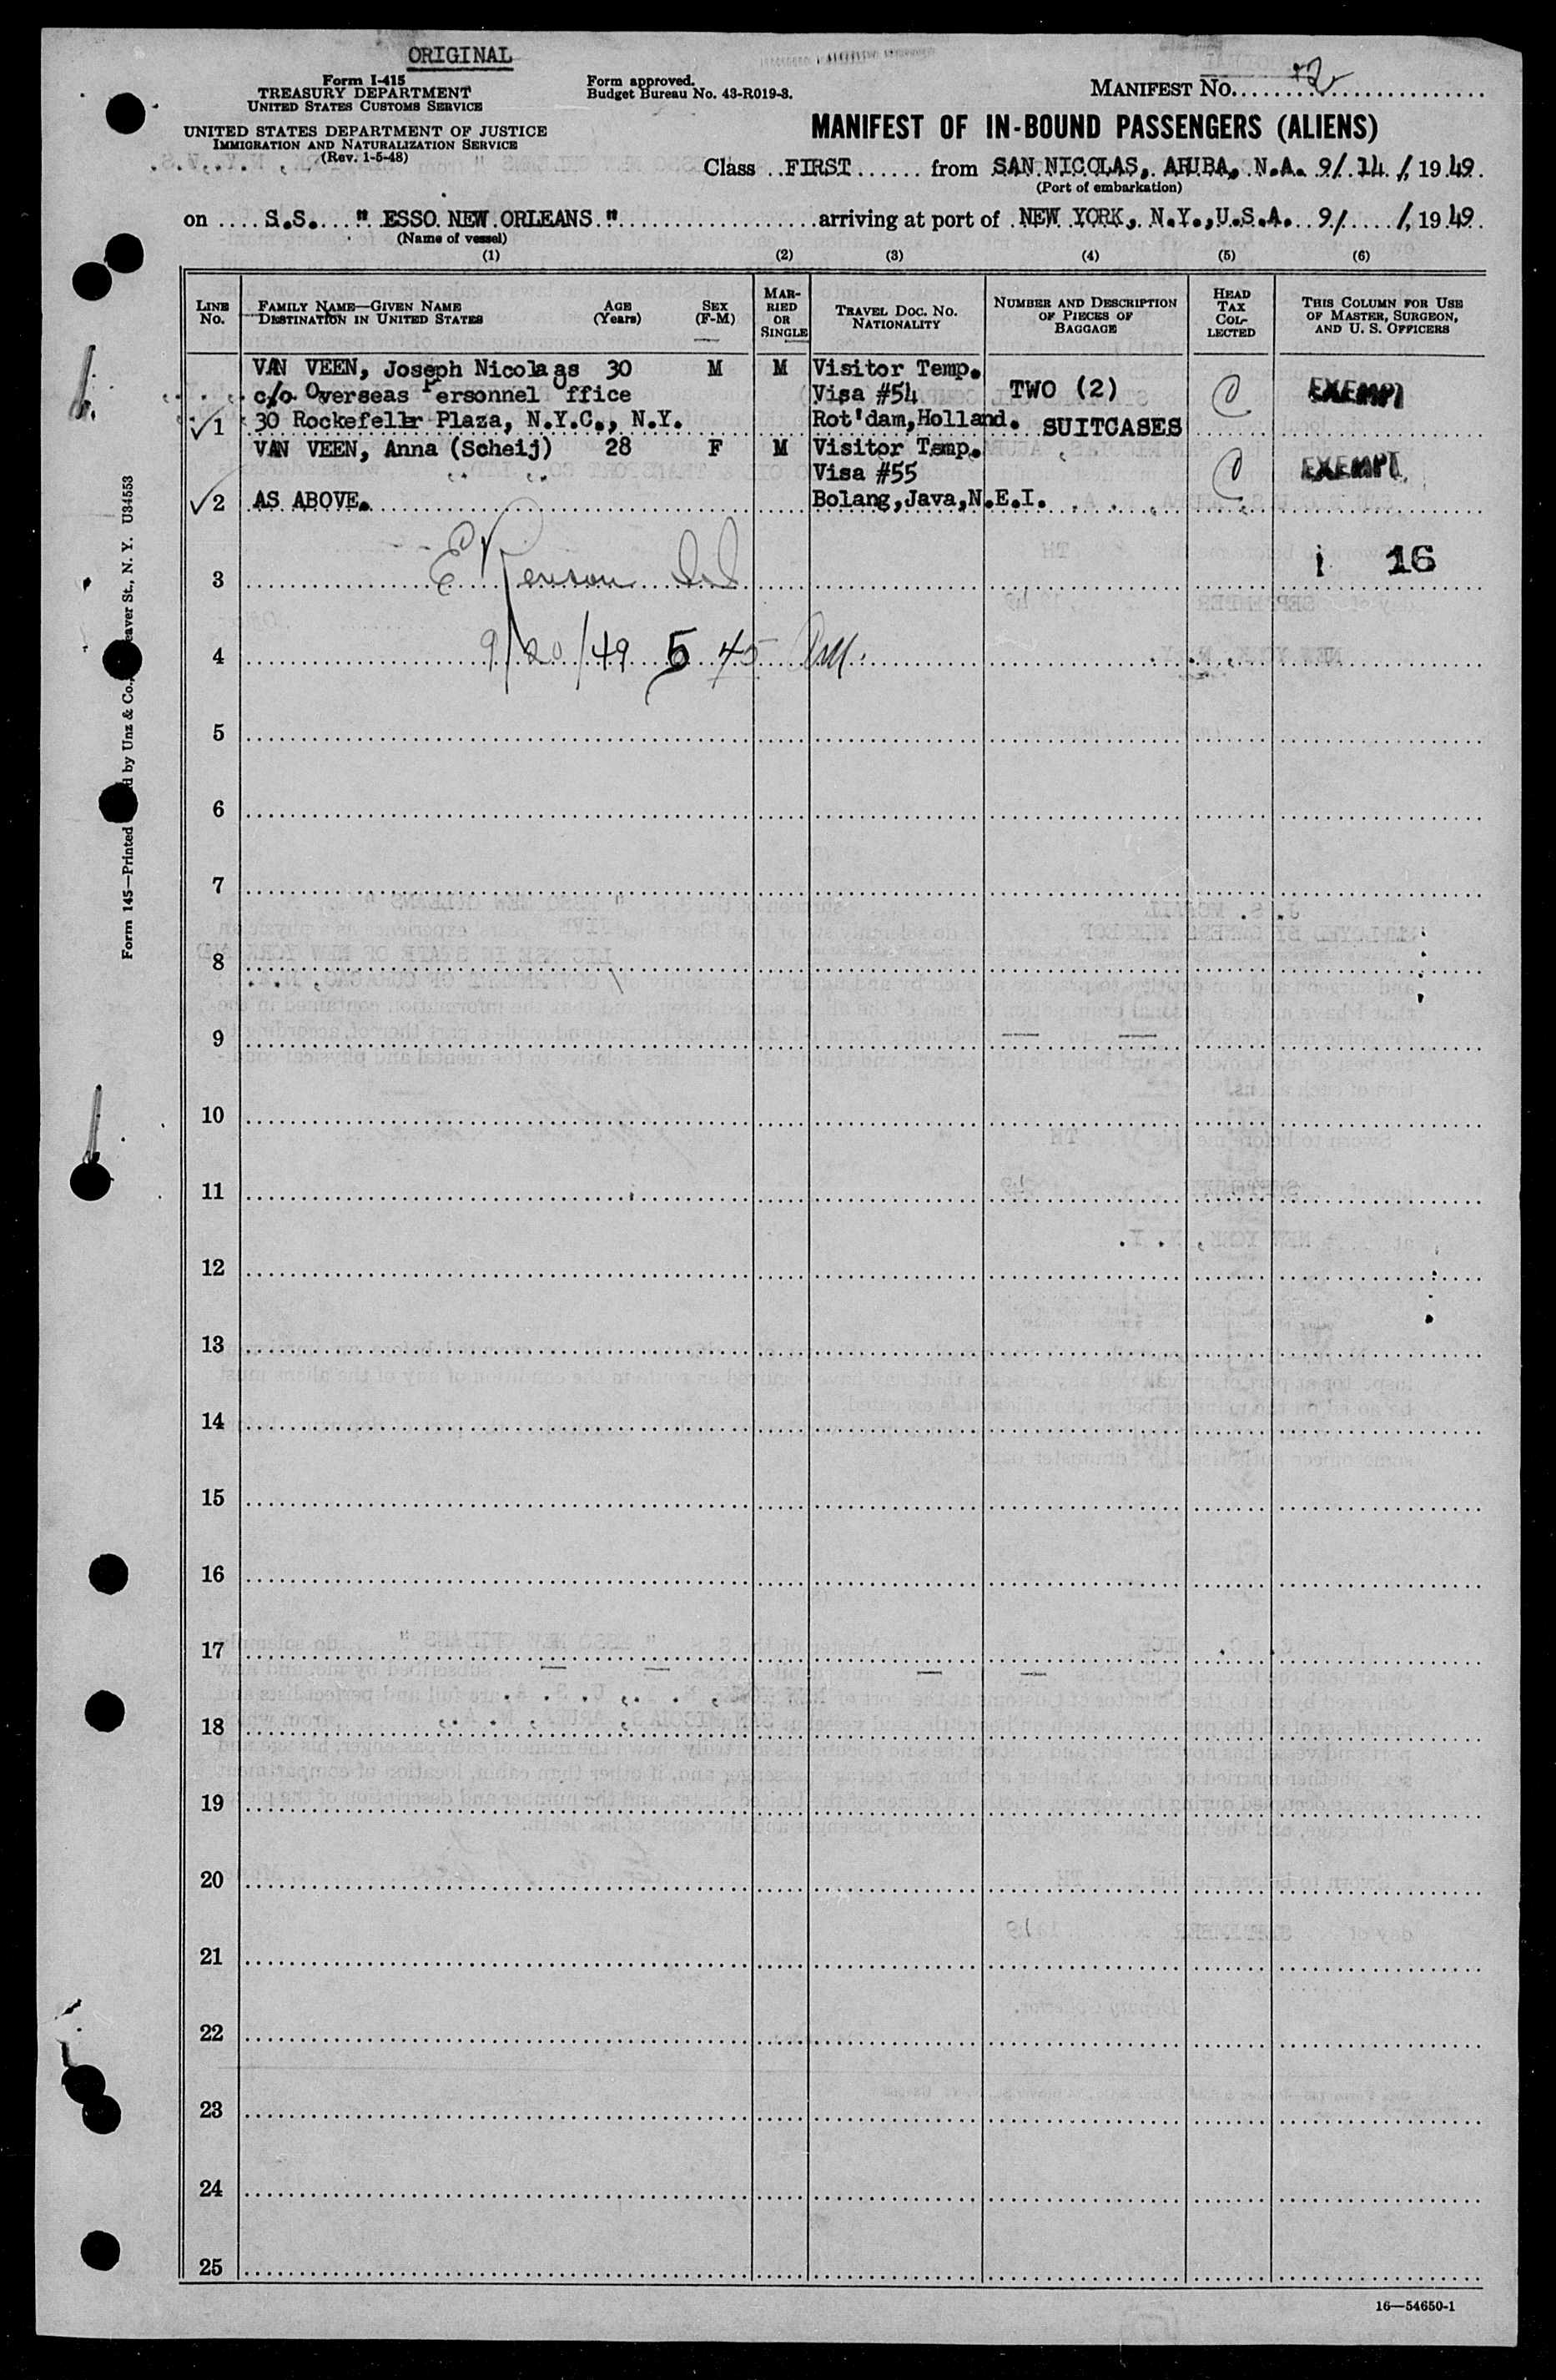 ORIGINAL
Form I-415
TREASURY DEPARTMENT
UNITED STATES CUSTOMS SERVICE
UNITED STATES DEPARTMENT OF JUSTICE
IMMIGRATION AND NATURALIZATION SERVICE
(Rev. 1-5-48)
Form approved.
Budget Bureau No. 43-R019-3.
MANIFEST NO. 2
MANIFEST OF IN-BOUND PASSENGERS (ALIENS)
Class FIRST from SAN NICOLAS, ARUBA, N.A. 9/ 14 /, 19 49.
(Port of embarkation)
on S.S. " ESSO NEW ORLEANS " arriving at port of NEW YORK, N.Y.,U.S.A. 9/ /, 19 49.
(Name of vessel)
(1) (2) (3) (4) (5) (6)
LINE NO.
FAMILY NAME—GIVEN NAME
DESTINATION IN UNITED STATES
AGE (Years)
SEX (F-M)
MARRIED OR SINGLE
TRAVEL DOC. NO.
NATIONALITY
NUMBER AND DESCRIPTION
OF PIECES OF
BAGGAGE
HEAD
TAX
COL-
LECTED
THIS COLUMN FOR USE
OF MASTER, SURGEON,
AND U. S. OFFICERS
VAN VEEN, Joseph Nicolaas 30 M M Visitor Temp.
c/o Overseas Personnel Office Visa #54 TWO (2) EXEMPT
1 30 Rockefellr Plaza, N.Y.C., N.Y. Rot'dam,Holland. SUITCASES
VAN VEEN, Anna (Scheij) 28 F M Visitor Temp.
Visa #55 EXEMPT
2 AS ABOVE. Bolang,Java,N.E.I.
3 16
4 9/20/49 5 45
5
6
7
8
9
10
11
12
13
14
15
16
17
18
19
20
21
22
23
24
25
16—54650-1
Form 145—Printed d by Unz & Co., eaver St., N. Y. U34553